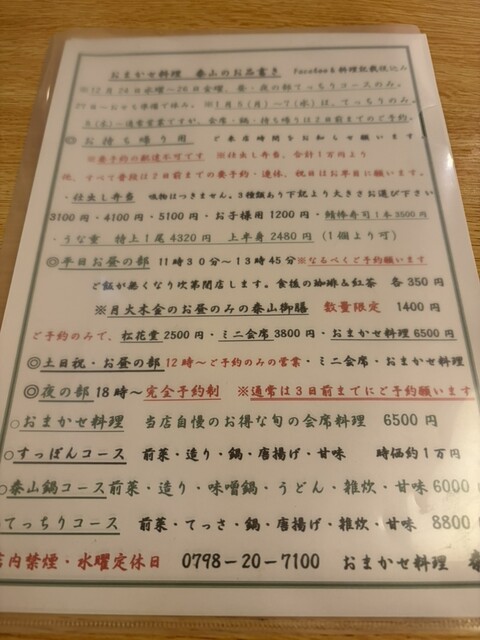 おまかせ料理　泰山のお品書き　Facebook料理記載税込み
※１２月２４日水曜～２６日金曜、昼・夜の部てっちりコースのみ。
２７日～おせち準備で休み。※１月５（月）～７（水）は、てっちりコース
８（木）～通常営業ですが、会席・鍋・持ち帰りは２日前までのご予約。
◎お持ち帰り用　ご来店時間をお知らせ願います。
※要予約の配達不可です　※仕出し弁当、合計１万円より
他、すべて普段は２日前までの要予約・連休、祝日はお早目に願います。
・仕出し弁当　吸物はつきません。３種類あり下記より大きさお選び下さい
3100円・4100円・5100円・お子様用1200円・鯖棒寿司1本3500円
・うな重　特上1尾4320円　上半身2480円（1個より可）
◎平日お昼の部　１１時３０分～１３時４５分　※なるべくご予約願います
ご飯が無くなり次第閉店します。食後の珈琲＆紅茶　各350円
※月火木金のお昼のみの泰山御膳　数量限定　1400円
ご予約のみで、松花堂2500円・ミニ会席3800円・おまかせ料理6500円
◎土日祝・お昼の部　12時～ご予約のみの営業・ミニ会席・おまかせ料理
◎夜の部　18時～完全予約制　※通常は３日前までにご予約願います
○おまかせ料理　当店自慢のお得な旬の会席料理　6500円
○すっぽんコース　前菜・造り・鍋・唐揚げ・甘味　時価約１万円
○泰山鍋コース　前菜・造り・味噌鍋・うどん・雑炊・甘味　6000
○てっちりコース　前菜・てっさ・鍋・唐揚げ・雑炊・甘味　8800
店内禁煙・水曜定休日　0798－20－7100　おまかせ料理